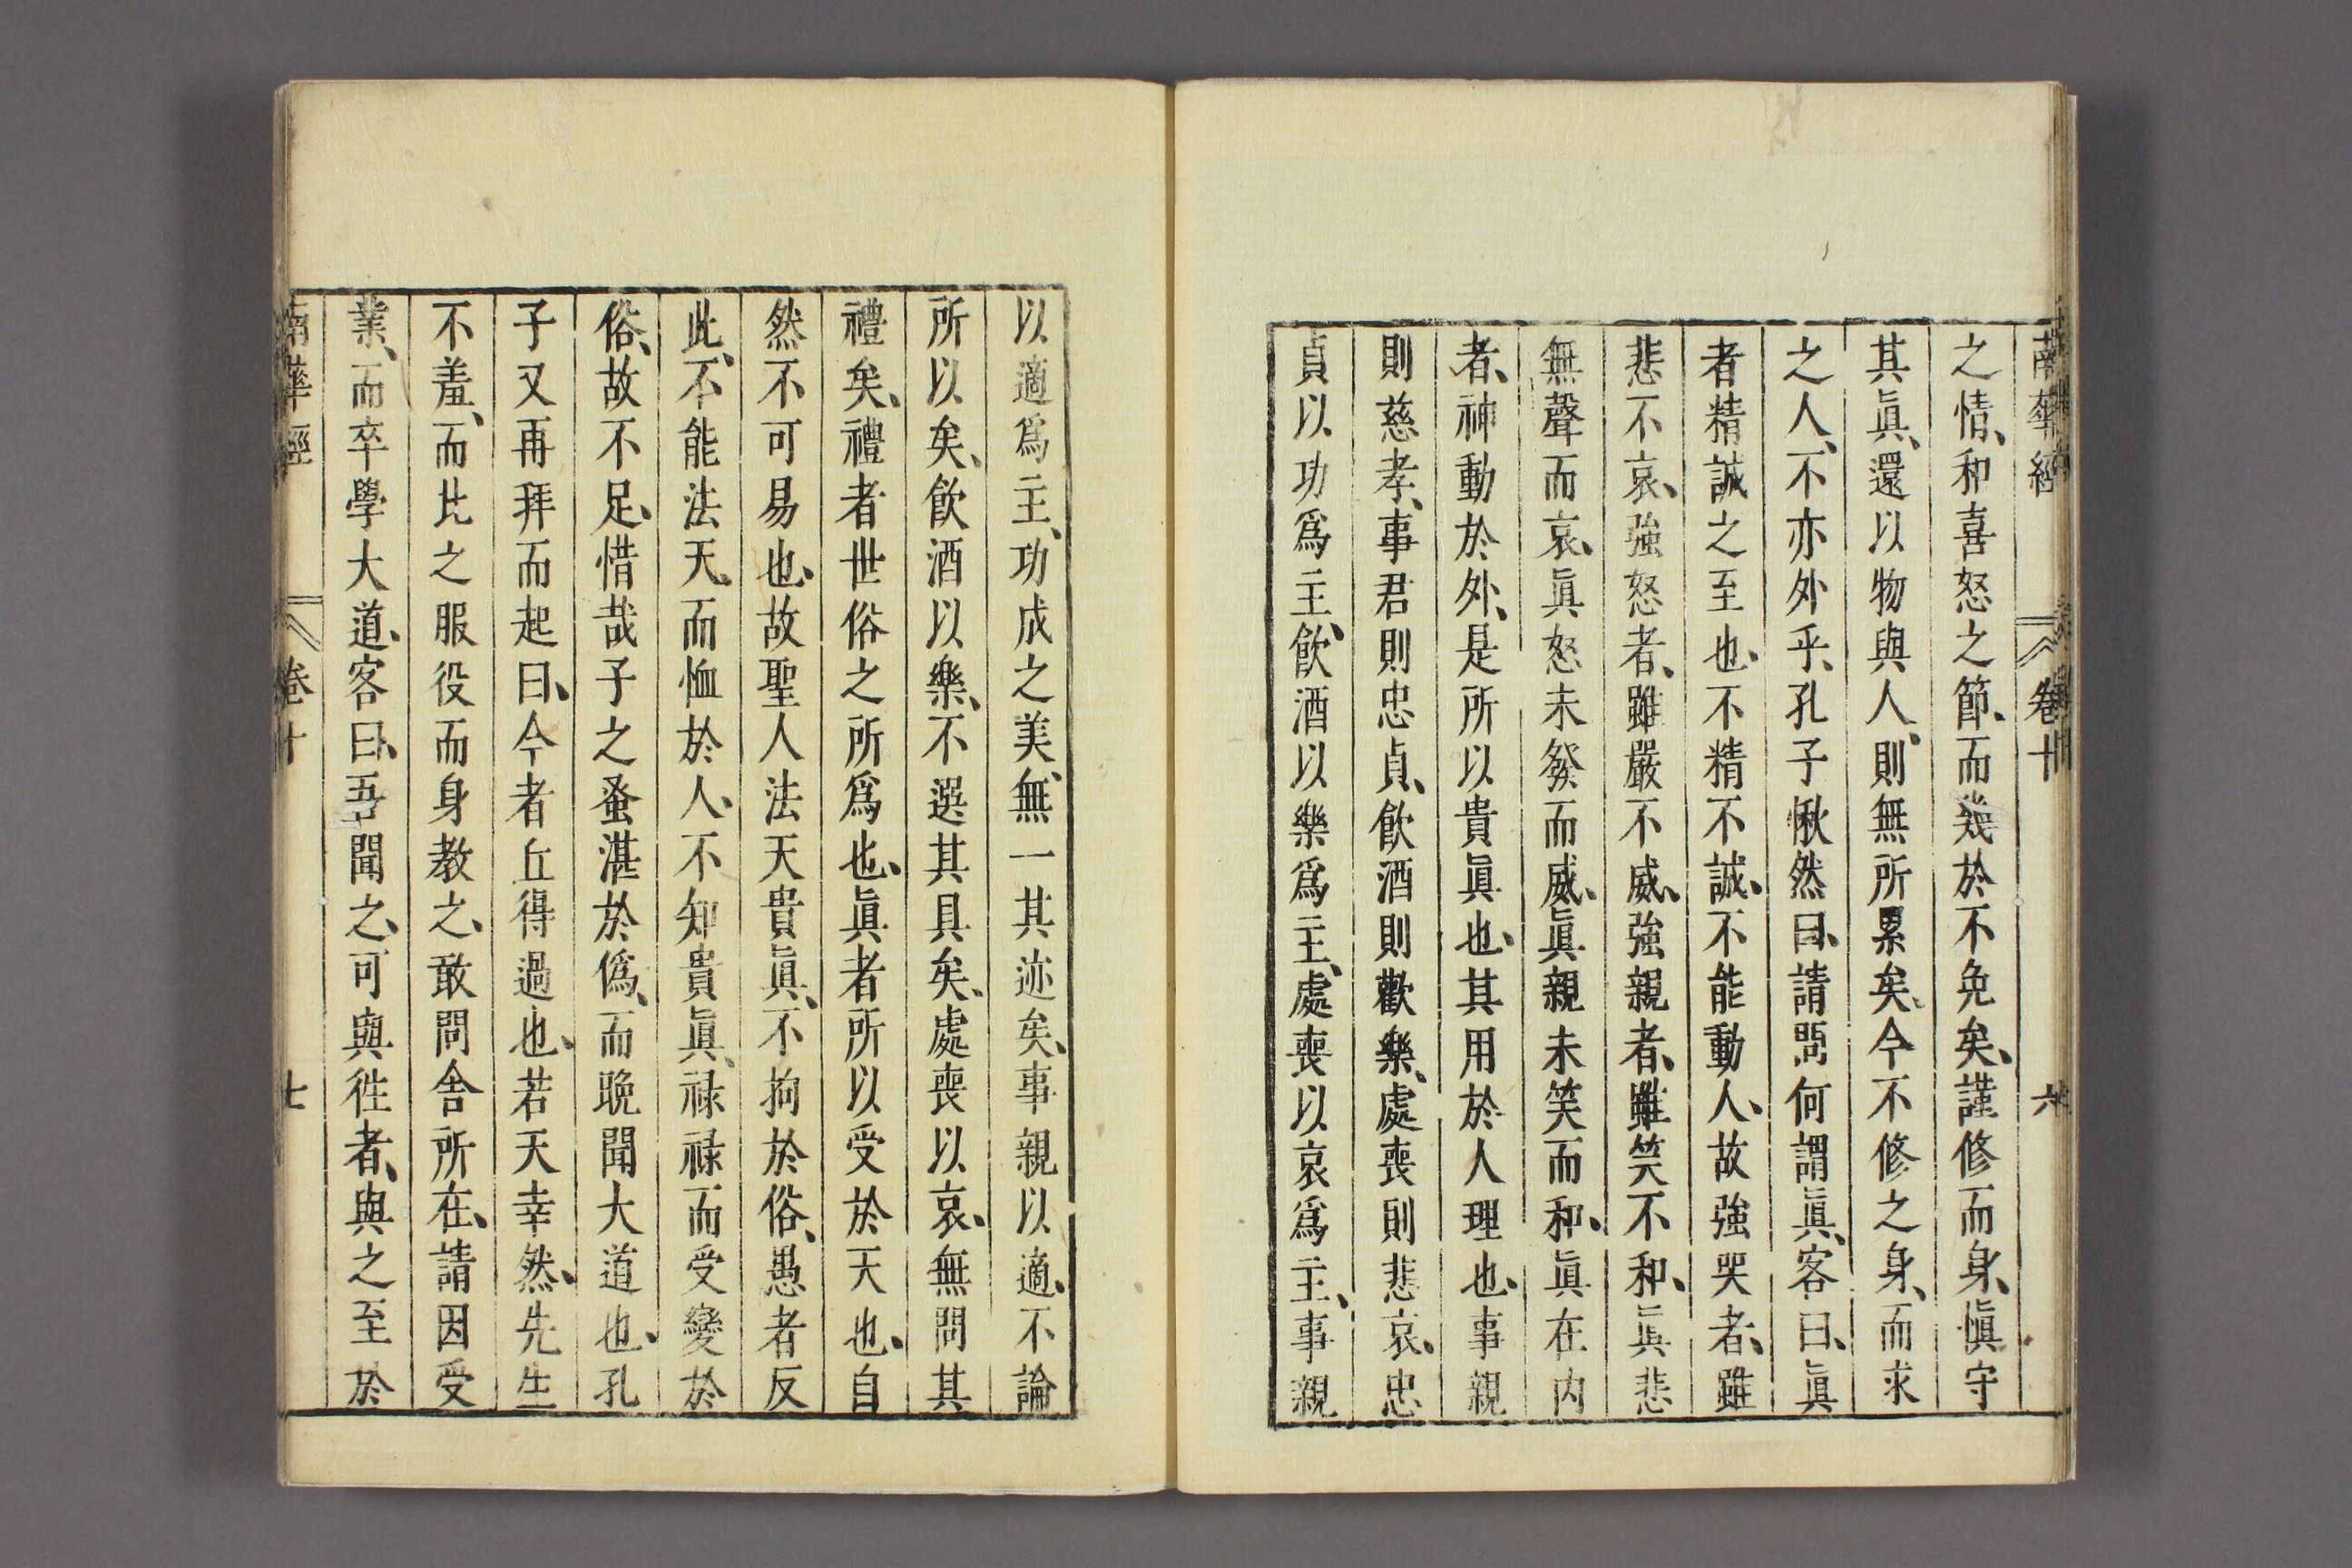 南華經 卷十 六
之情、和喜怒之節、而幾於不免矣、謹修而身、愼守
其眞、還以物與人、則無所累矣、今不修之身、而求
之人、不亦外乎、孔子愀然曰、請問何謂眞、客曰、眞
者精誠之至也、不精不誠、不能動人、故強哭者、雖
悲不哀、強怒者、雖嚴不威、強親者、雖笑不和、眞悲
無聲而哀、眞怒未發而威、眞親未笑而和、眞在内
者、神動於外、是所以貴眞也、其用於人理也、事親
則慈孝、事君則忠貞、飲酒則歡樂、處喪則悲哀、忠
貞以功爲主、飲酒以樂爲主、處喪以哀爲主、事親
以適爲主、功成之美、無一其迹矣、事親以適、不論
所以矣、飲酒以樂、不選其具矣、處喪以哀、無問其
禮矣、禮者世俗之所爲也、眞者所以受於天也、自
然不可易也、故聖人法天貴眞、不拘於俗、愚者反
此、不能法天、而恤於人、不知貴眞、禄禄而受變於
俗、故不足、惜哉子之蚤湛於僞、而晚聞大道也、孔
子又再拜而起曰、今者丘得過也、若天幸然、先生
不羞、而比之服役而身教之、敢問舍所在、請因受
業、而卒學大道、客曰、吾聞之、可與徃者、與之至於
南華經 卷十 七